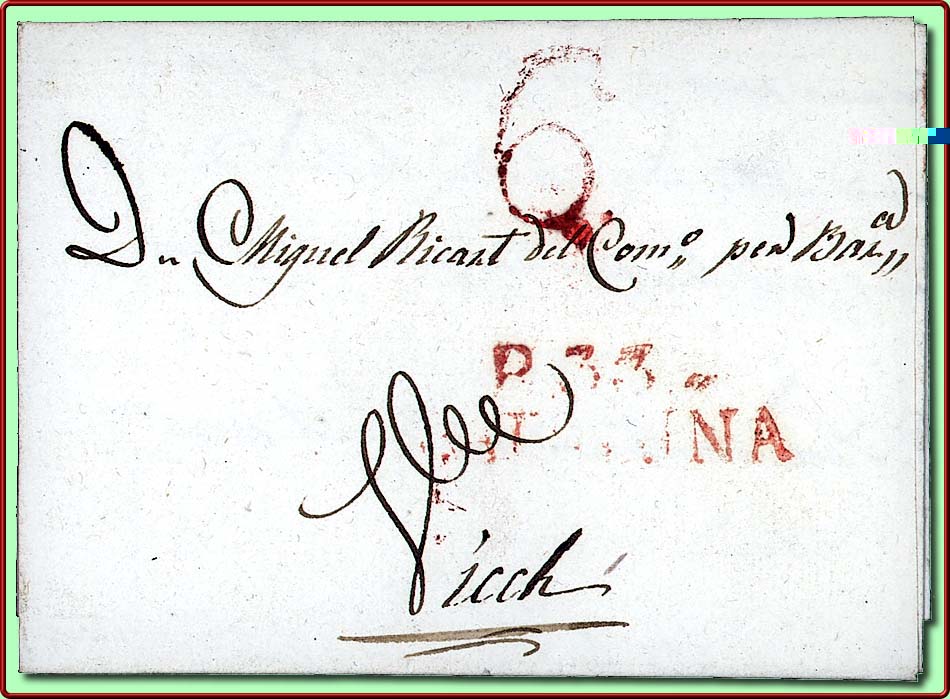 6
Dn Miguel Ricart del Comº per Barna
P. 33
UNA
Vicch